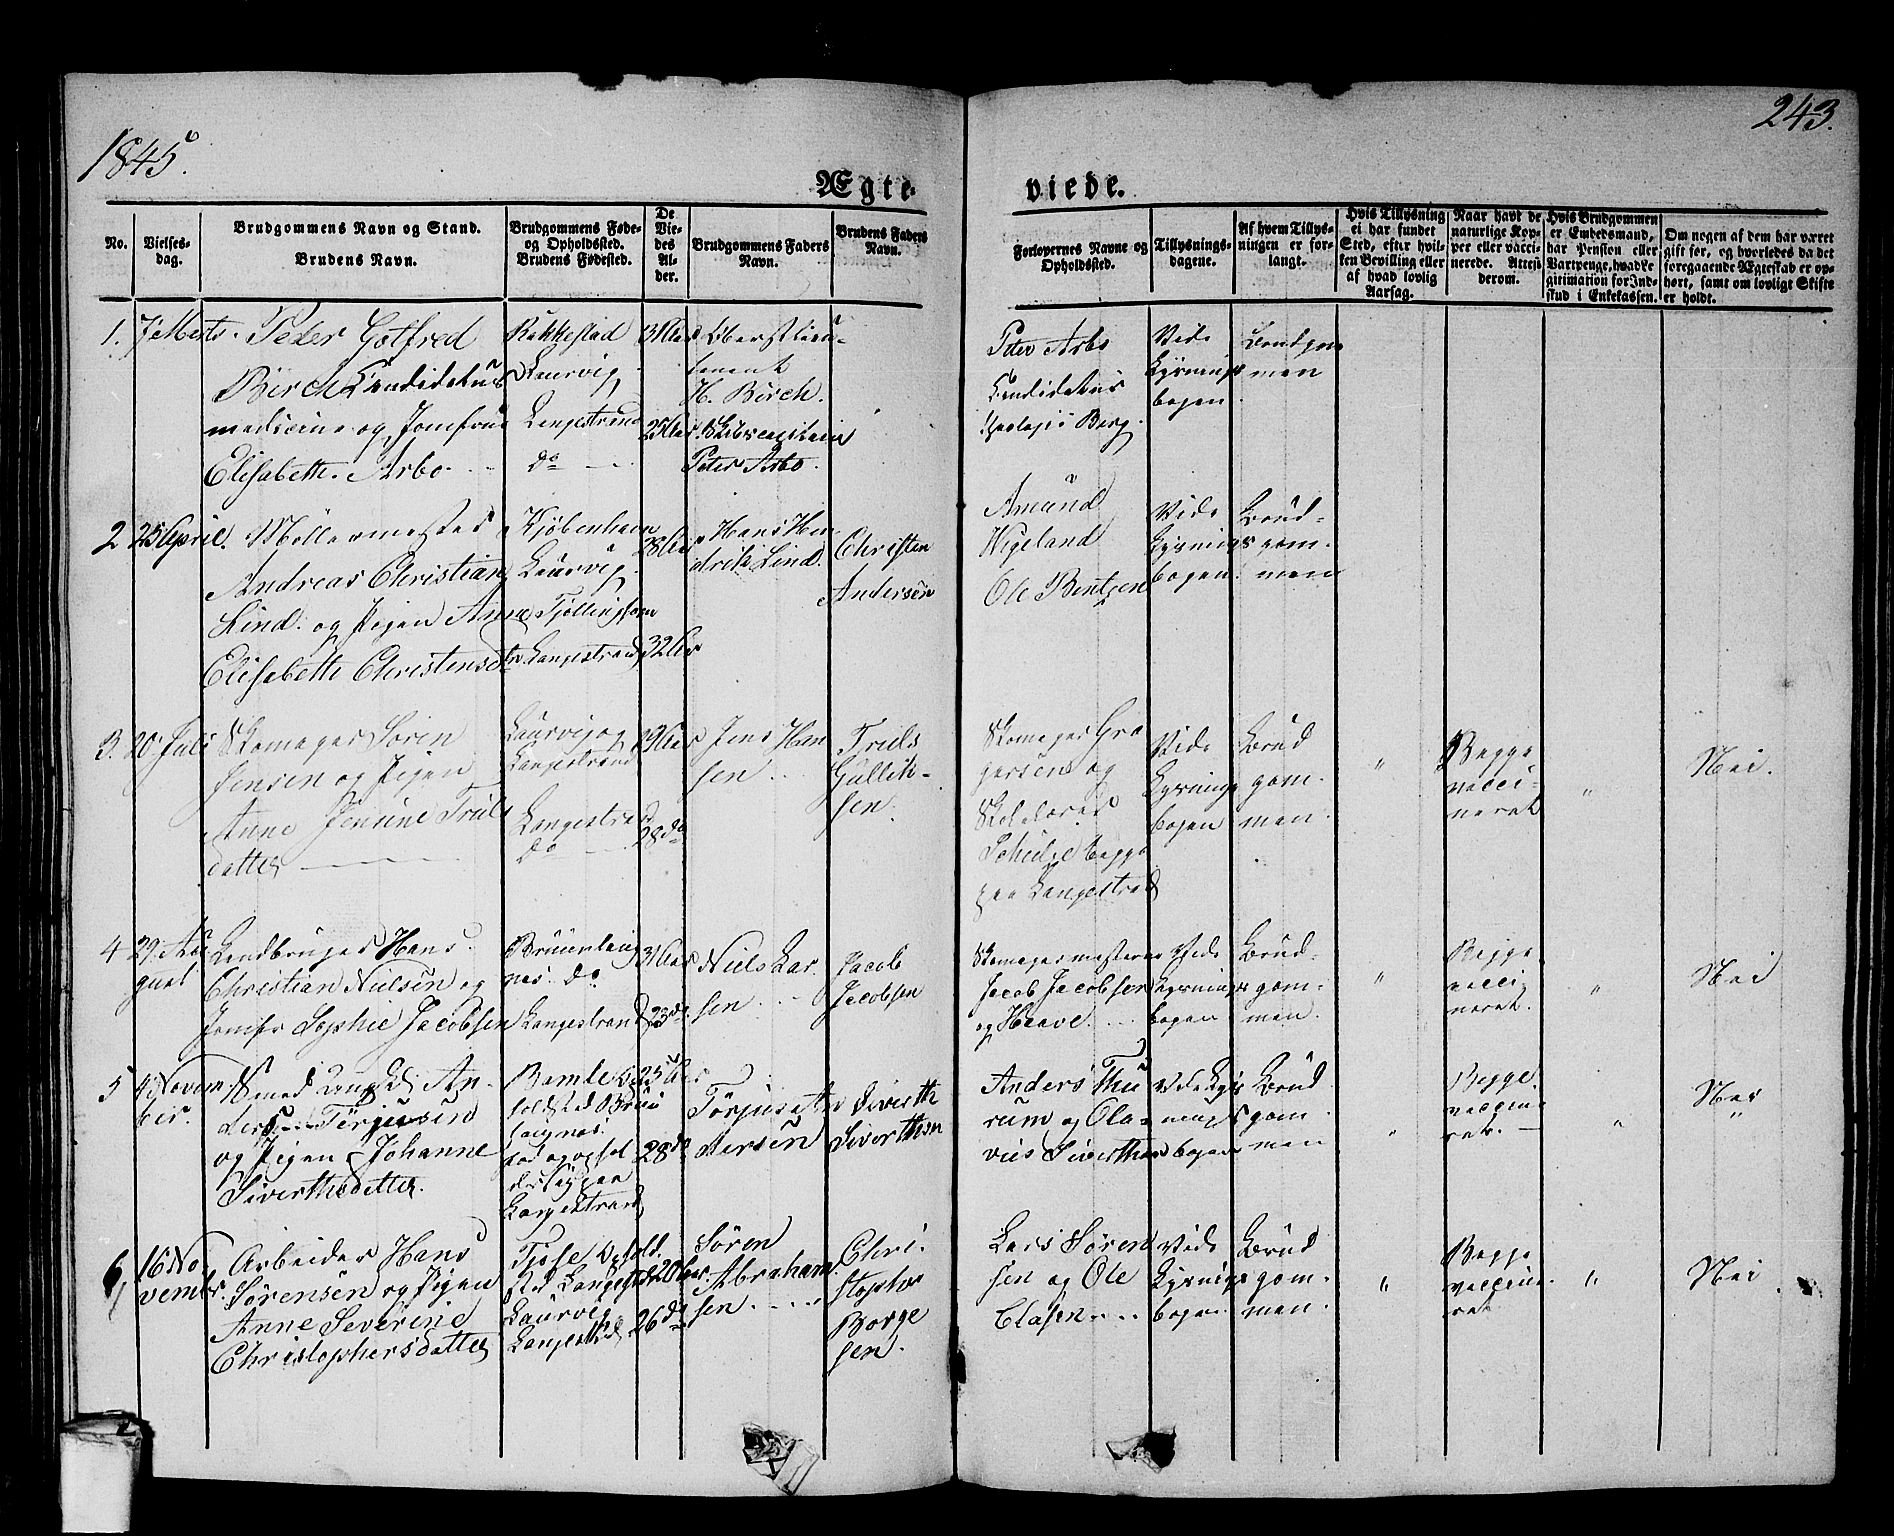 1845.
243.
Ægte-
viede.
No.
Vielses-
dag.
Brudgommens Navn og Stand.
Brudens Navn.
Brudgommens Føde-
og Opholdssted.
Brudens Fødested.
De
Vie-
des
Al-
der.
Brudgommens Faders
Navn.
Brudens Faders
Navn.
Forlovernes Navne og
Opholdssted.
Tillysnings-
dagene.
Af hvem Tillys-
ningen er for-
langt.
Hvis Tillysning
ei har fundet
Sted, efter hvil-
ken Bevilling eller
af hvad lovlig
Aarsag.
Naar havt de
naturlige Kop-
per eller vacci-
nerede. Attest
derom.
Hvis Brudgommen
er Embedsmand,
har Pension eller
Vartpenge, hvad Le-
gitimation for Ind-
skud i Enkekassen.
Om nogen af dem har været
gift før, og hvorledes da det
foregaaende Ægteskab er op-
hørt, samt om lovligt Skifte
er holdt.
1. 7 Marts.
Peter Gotfred
Birch Candidatus
medicine og Jomfrue
Elisabeth Arbo
Rakkestad
Laurvig
Langestrand
do
31 Aar
25 Aar
Oberstlieu-
tenant
H. Birch.
Skibscapitain
Peter Arbo.
Peter Arbo
Candidatus
Theologi i Berg.
Vide
Lysnings
bogen.
Brudgom
men
2 25 April.
Möllermester
Andreas Christian
Lind. og Pigen Anne
Elisabeth Christensdtr
Kjöbenhavn
Laurvig.
Tjöllingsogn
Langestrand
28 Aar
32 Aar
Hans Hen
drik Lind.
Christen
Andersen
Amund
Wigeland
Ole Bentzen
Vide
Lysnings
bogen.
Brud-
gom-
men
3. 20 Juli
Skomager Sören
Jensen og Pigen
Anne Jensine Truls
datter
Laurvig og
Langestrand
Langestrand
do
29 Aar
28 do
Jens Han
sen
Truls
Gullik-
sen.
Skomager Gre
gersen og
Schulze begge
paa Langestrand
Vide
Lysnings
bogen
Brud
gom-
men.
"
Begge
vacci-
neret
"
Nei.
4 29. Au
gust
Landbruger Hans
Christian Nielsen og
Jomfr Sophie Jacobsen
do
Langestrand
31 Aar
23 do
Niels Lar
sen
Jacob
Jacobsen
Skomagermestere
Jacob Jacobsen
og Haave.
Vide
Lysnings
bogen
Brud-
gom-
men.
"
Begge
vacci
neret.
"
Nei
5 4 Novem
ber.
Smed An-
ders Törjusen
og Pigen Johanne
Siverthsdatter.
Bamle Op
Langestrand
25 Aar
28 do
Törjus An
dersen
Siverth
Siverthsen
Anders Thu
rum og Ola-
vus Siverthsen
Vide Lys
nings
bogen
Brud
gom
men
"
Begge
vaccine
ret.
"
Nei
6 16 No
vembr.
Arbeider Hans
Sörensen og Pigen
Anne Severine
Christophersdatter
Tjose Ophold.
sted Langestrd
Laurvig
Langestrd
20 Aar.
26 do
Sören
Abraham
sen.
Chri-
stopher
Borge
sen.
Lars Sören
sen og Ole
Olasen
Vide
Lysnings
bogen.
Brud
gom-
men.
"
Begge
vaccine
ret
"
Nei